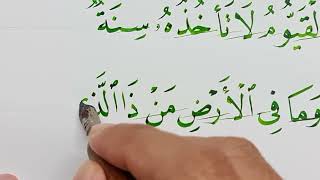 لْقَيُّومُ لَا تَأْخُذُهُ سِنَةٌ
وَمَا فِي الْأَرْضِ مَنْ ذَا الَّذِي